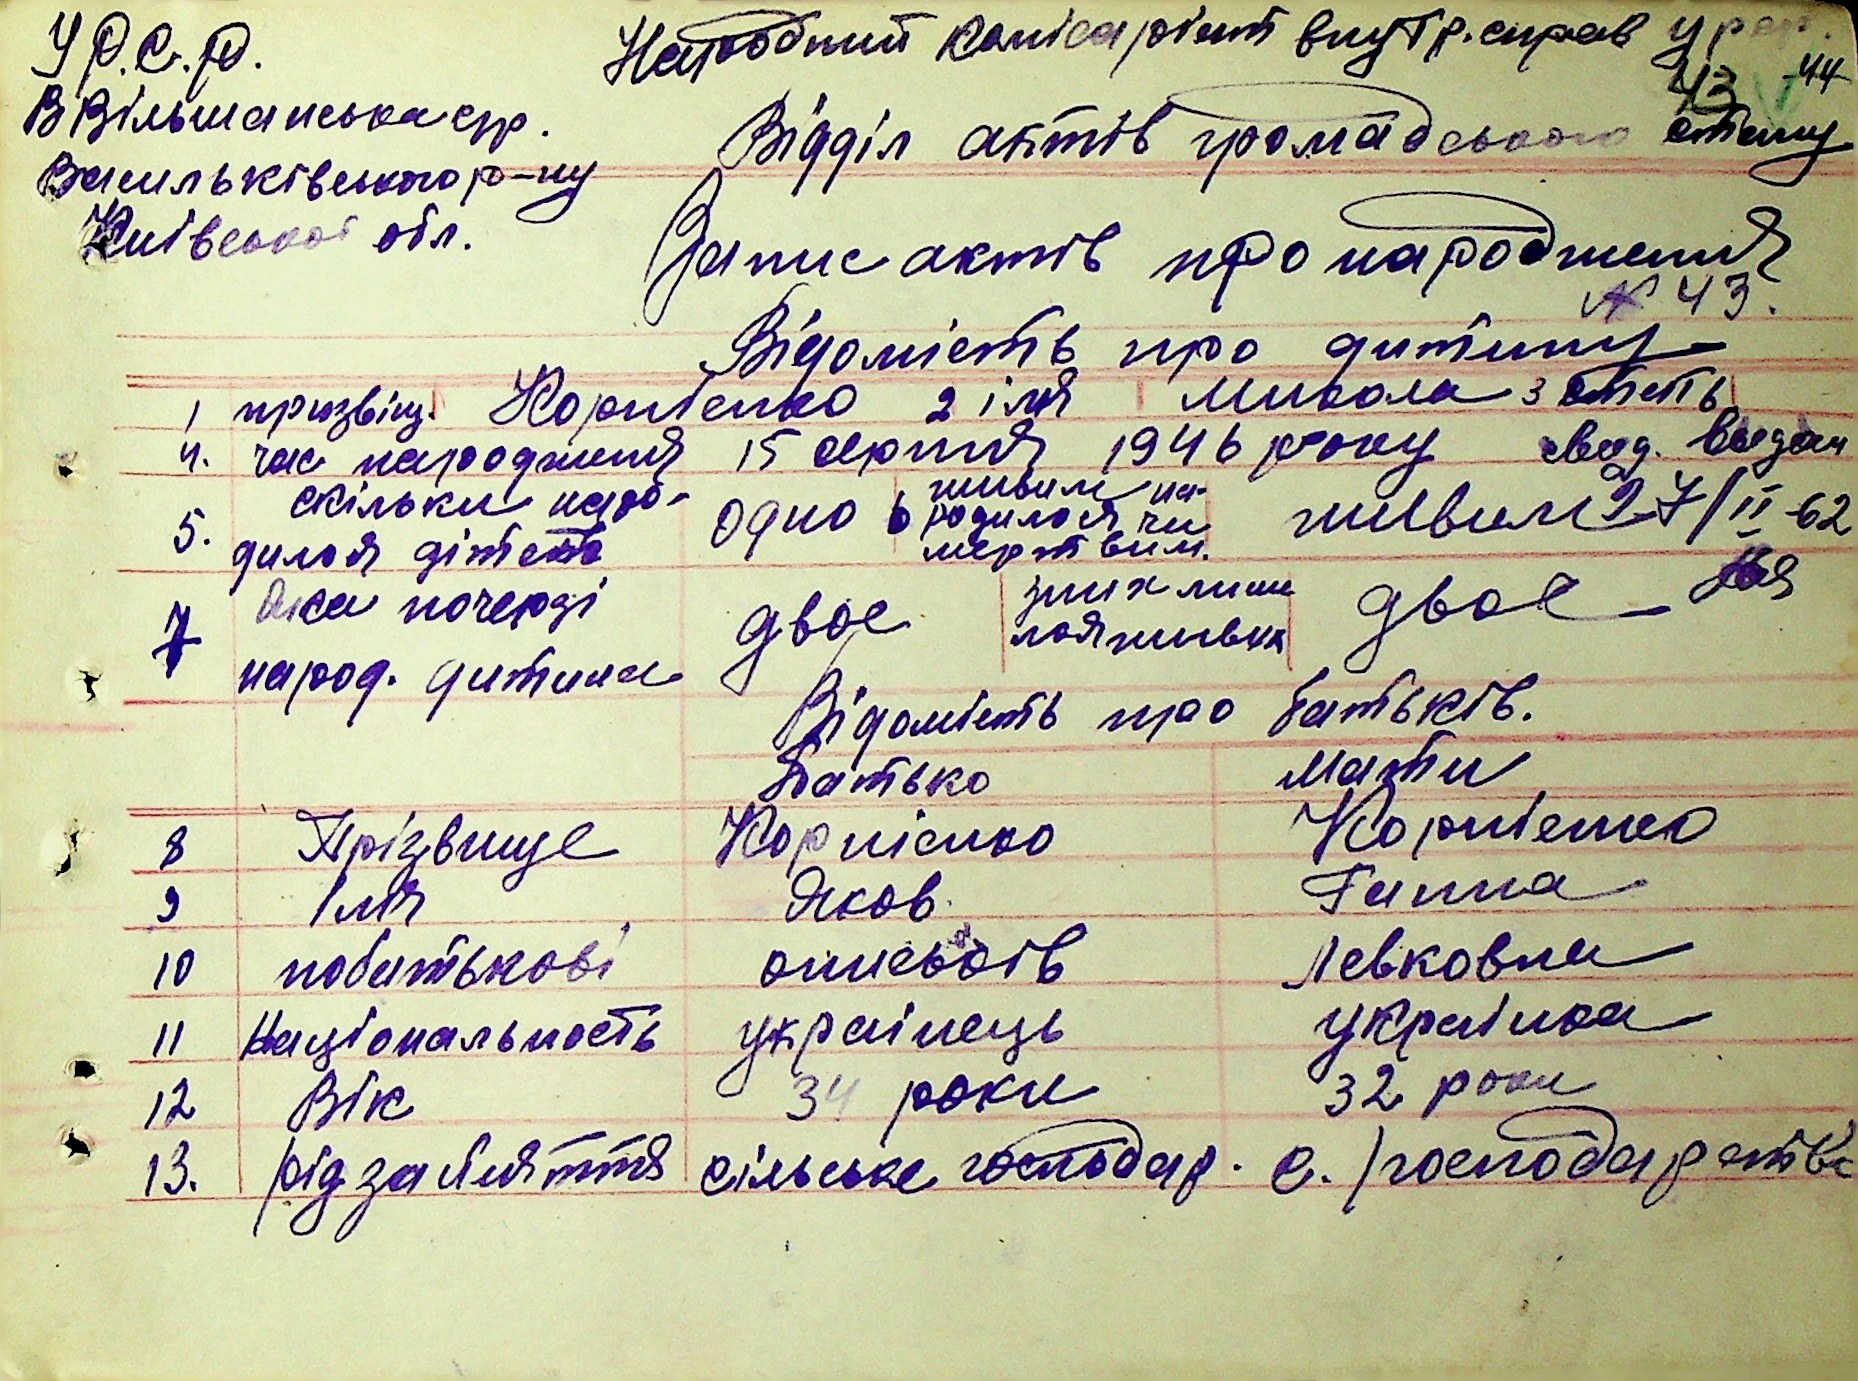 У.Р.С.Р. Народний комісаріат внутр. справ УРСР.
43 44
В Вільшанська с/р. Відділ актів громадського стану
Васильківського р-ну
Київської обл. Запис актів про народження
№ 43.
Відомість про дитину
1 прізвищ. Корнієнко 2 імя Микола 3 стать
4. час народження 15 серпня 1946 року свід. видан
5. скільки наро-дилося дітей одно 6 живим на-родилося чи мертвим. живим 27/II-62
7 яка по черзі народ. дитина двоє з них лиши лося живих двоє
Відомість про батьків.
Батько Мати
8 Прізвище Корнієнко Корнієнко
9 Імя Яков Ганна
10 побатькові Левковна
11 Національность українець українка
12 Вік 34 роки 32 роки
13. рід заняття сільське господар. с/господарство